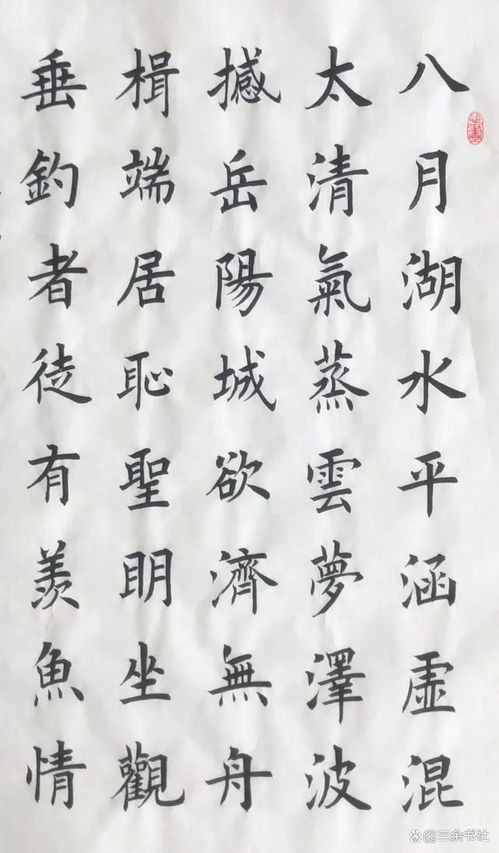 八月湖水平涵虛混
太清氣蒸雲夢澤波
撼岳陽城欲濟無舟
楫端居恥聖明坐觀
垂釣者徒有羨魚情
三余书社